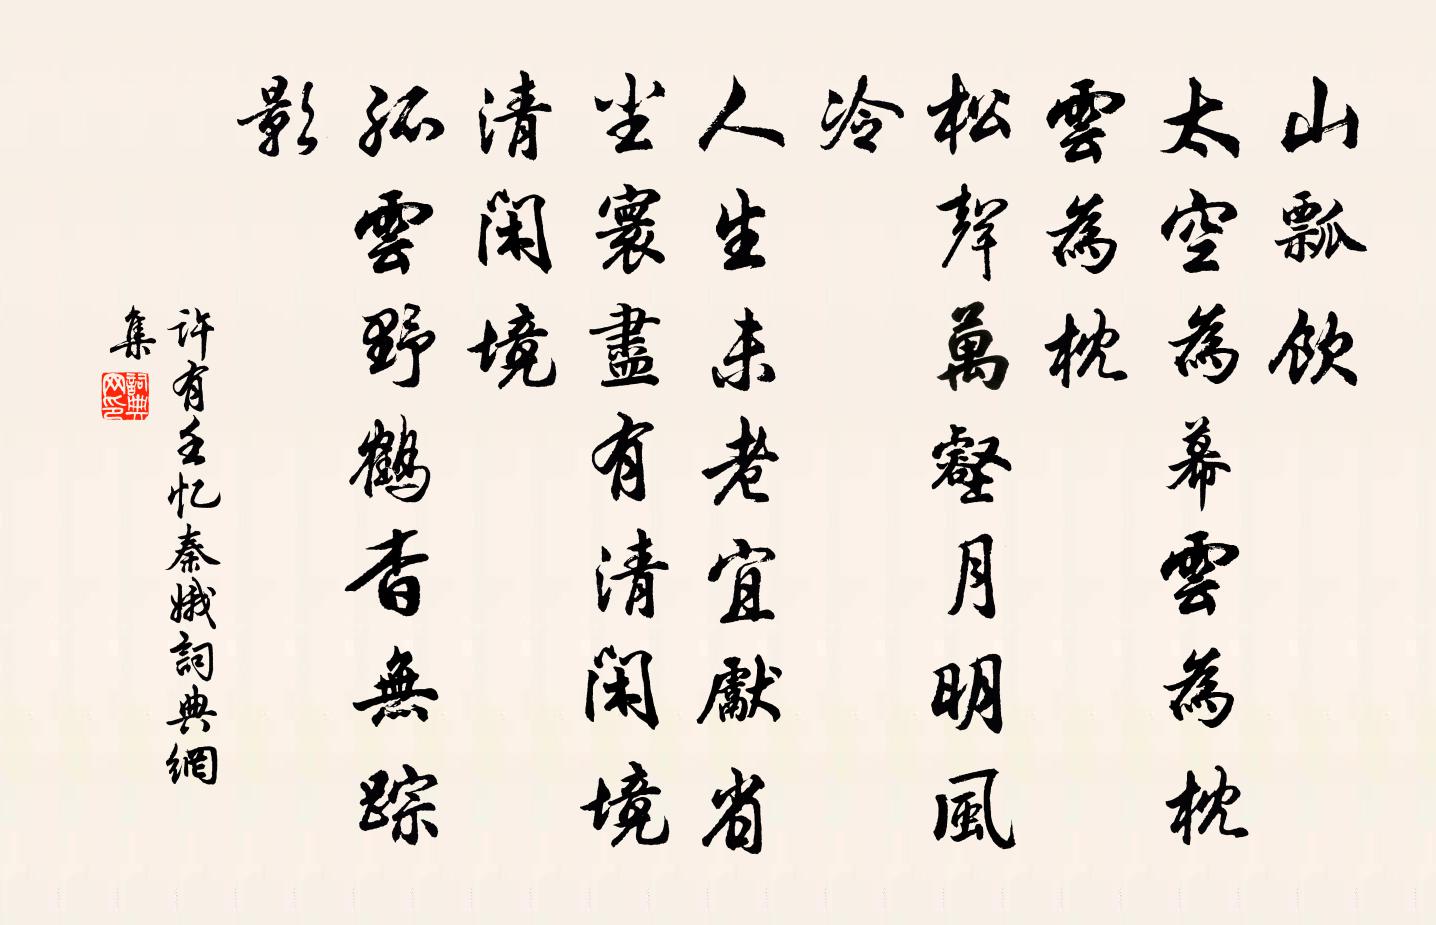 山瓢飲
太空為幕雲為枕
雲為枕
松聲萬壑月明風
冷
人生未老宜獻省
尘寰盡有清閑境
清閑境
孤雲野鶴杳無踪
影
許有壬忆秦娥詞典網
集
詞典
网印